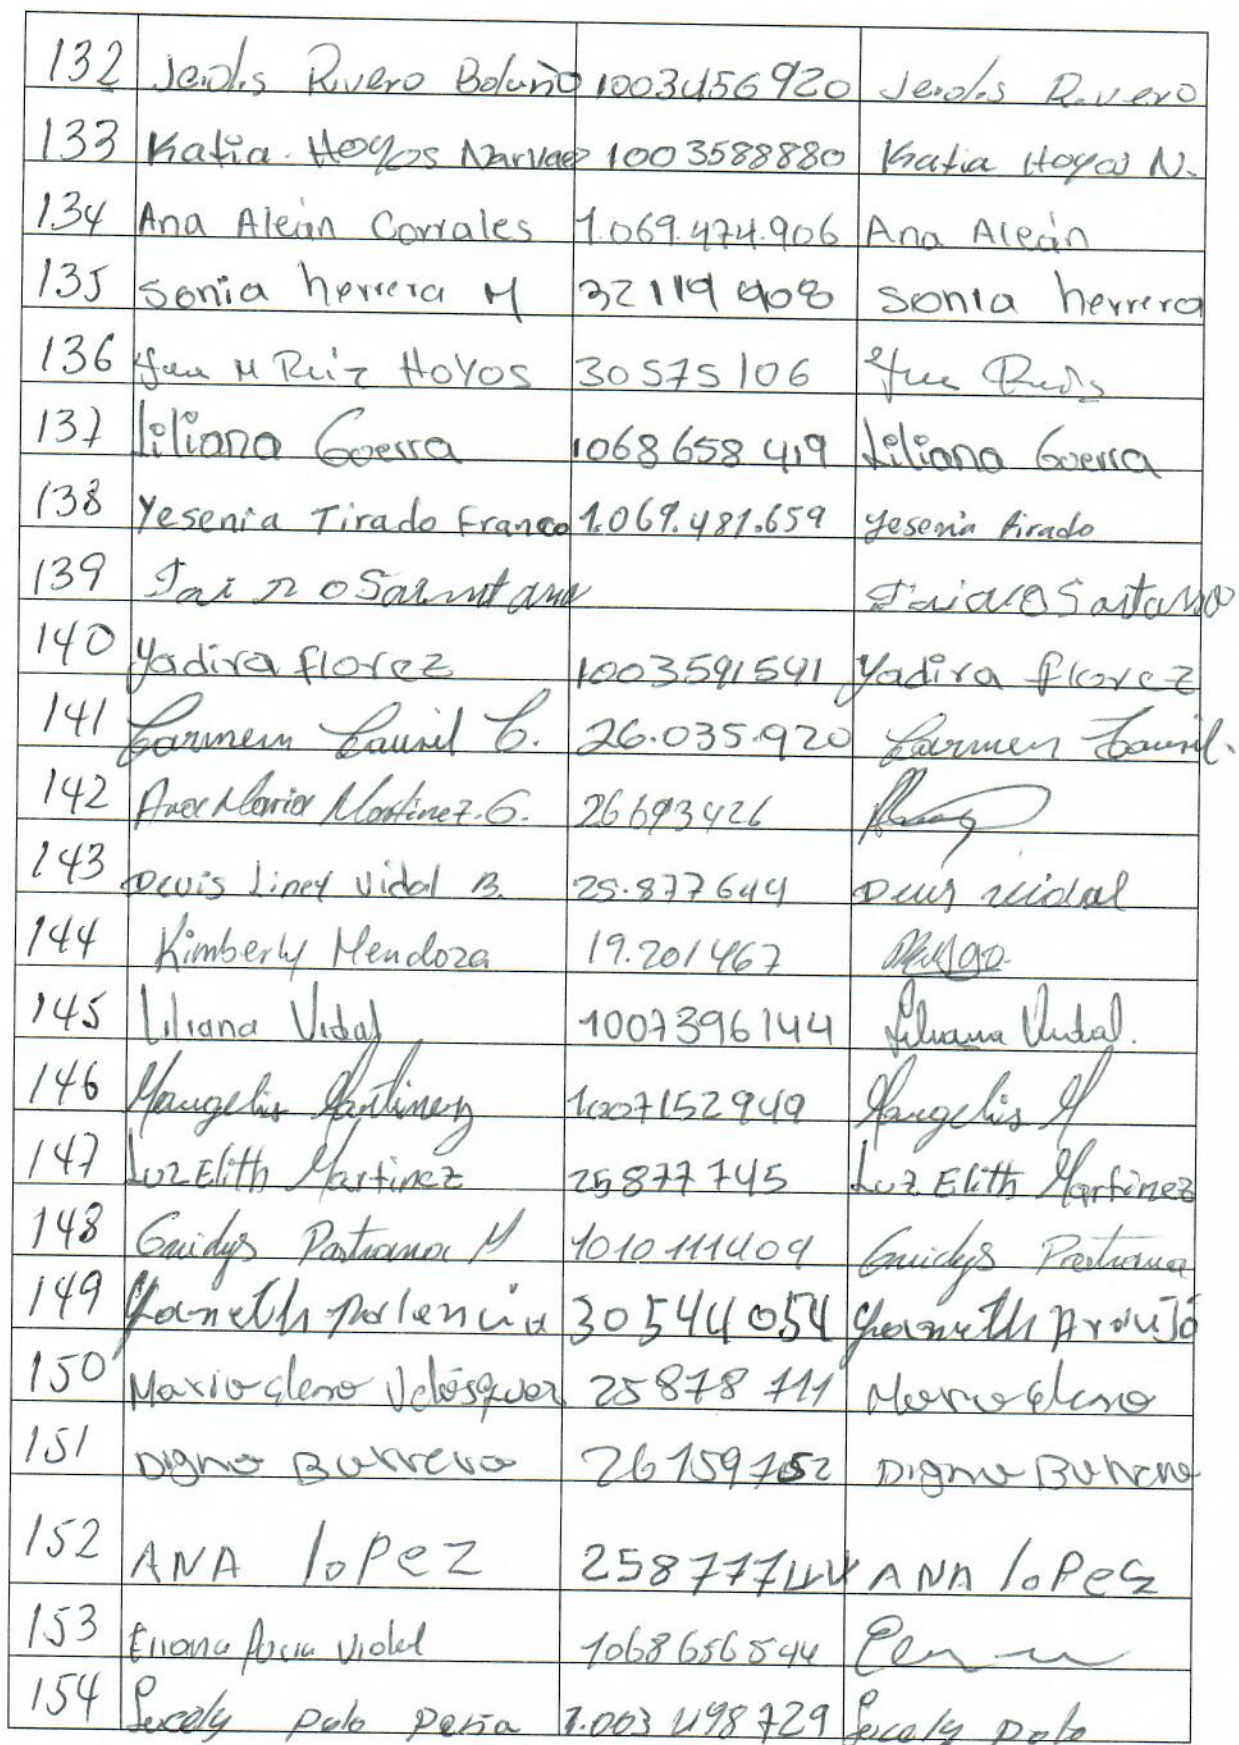 132 Jeidis Rivero Bolaño 1003456920 Jeidis Rivero
133 Katia Hoyos Narvaez 1003588880 Katia Hoyos N.
134 Ana Aleán Corrales 1.069.474.906 Ana Aleán
135 Sonia herrera M 32119908 Sonia herrera
136 M Ruiz Hoyos 30575106
137 Liliana Guerra 1068658419 Liliana Guerra
138 Yesenia Tirado Franco 1.069.481.659 Yesenia tirado
139
140 Yadira florez 1003591541 Yadira florez
141 Carmen C. 26.035.920 Carmen
142 Ana Maria Martinez. G. 26693426
143 Deuis Liney Vidal B. 25.877644 Vidal
144 Kimberly Mendoza 19.201467
145 Liliana Vidal 1007396144 Liliana Vidal.
146 Maugelis Martinez 1007152949 Maugelis M
147 Luz Elith Martinez 25877745 Luz Elith Martinez
148 Guidys Pastrana M 1010111409 Guidys Pastrana
149 Yaneth Palencia 30544054 Yaneth Araujo
150 Maria elena Velásquez 25878711 Maria elena
151 Digna Barrera 26159152 Digna
152 ANA loPez 258777 ANA loPez
153 Eliana Vidal 1068656544
154 Lucely polo peña 1.003498729 Lucely polo